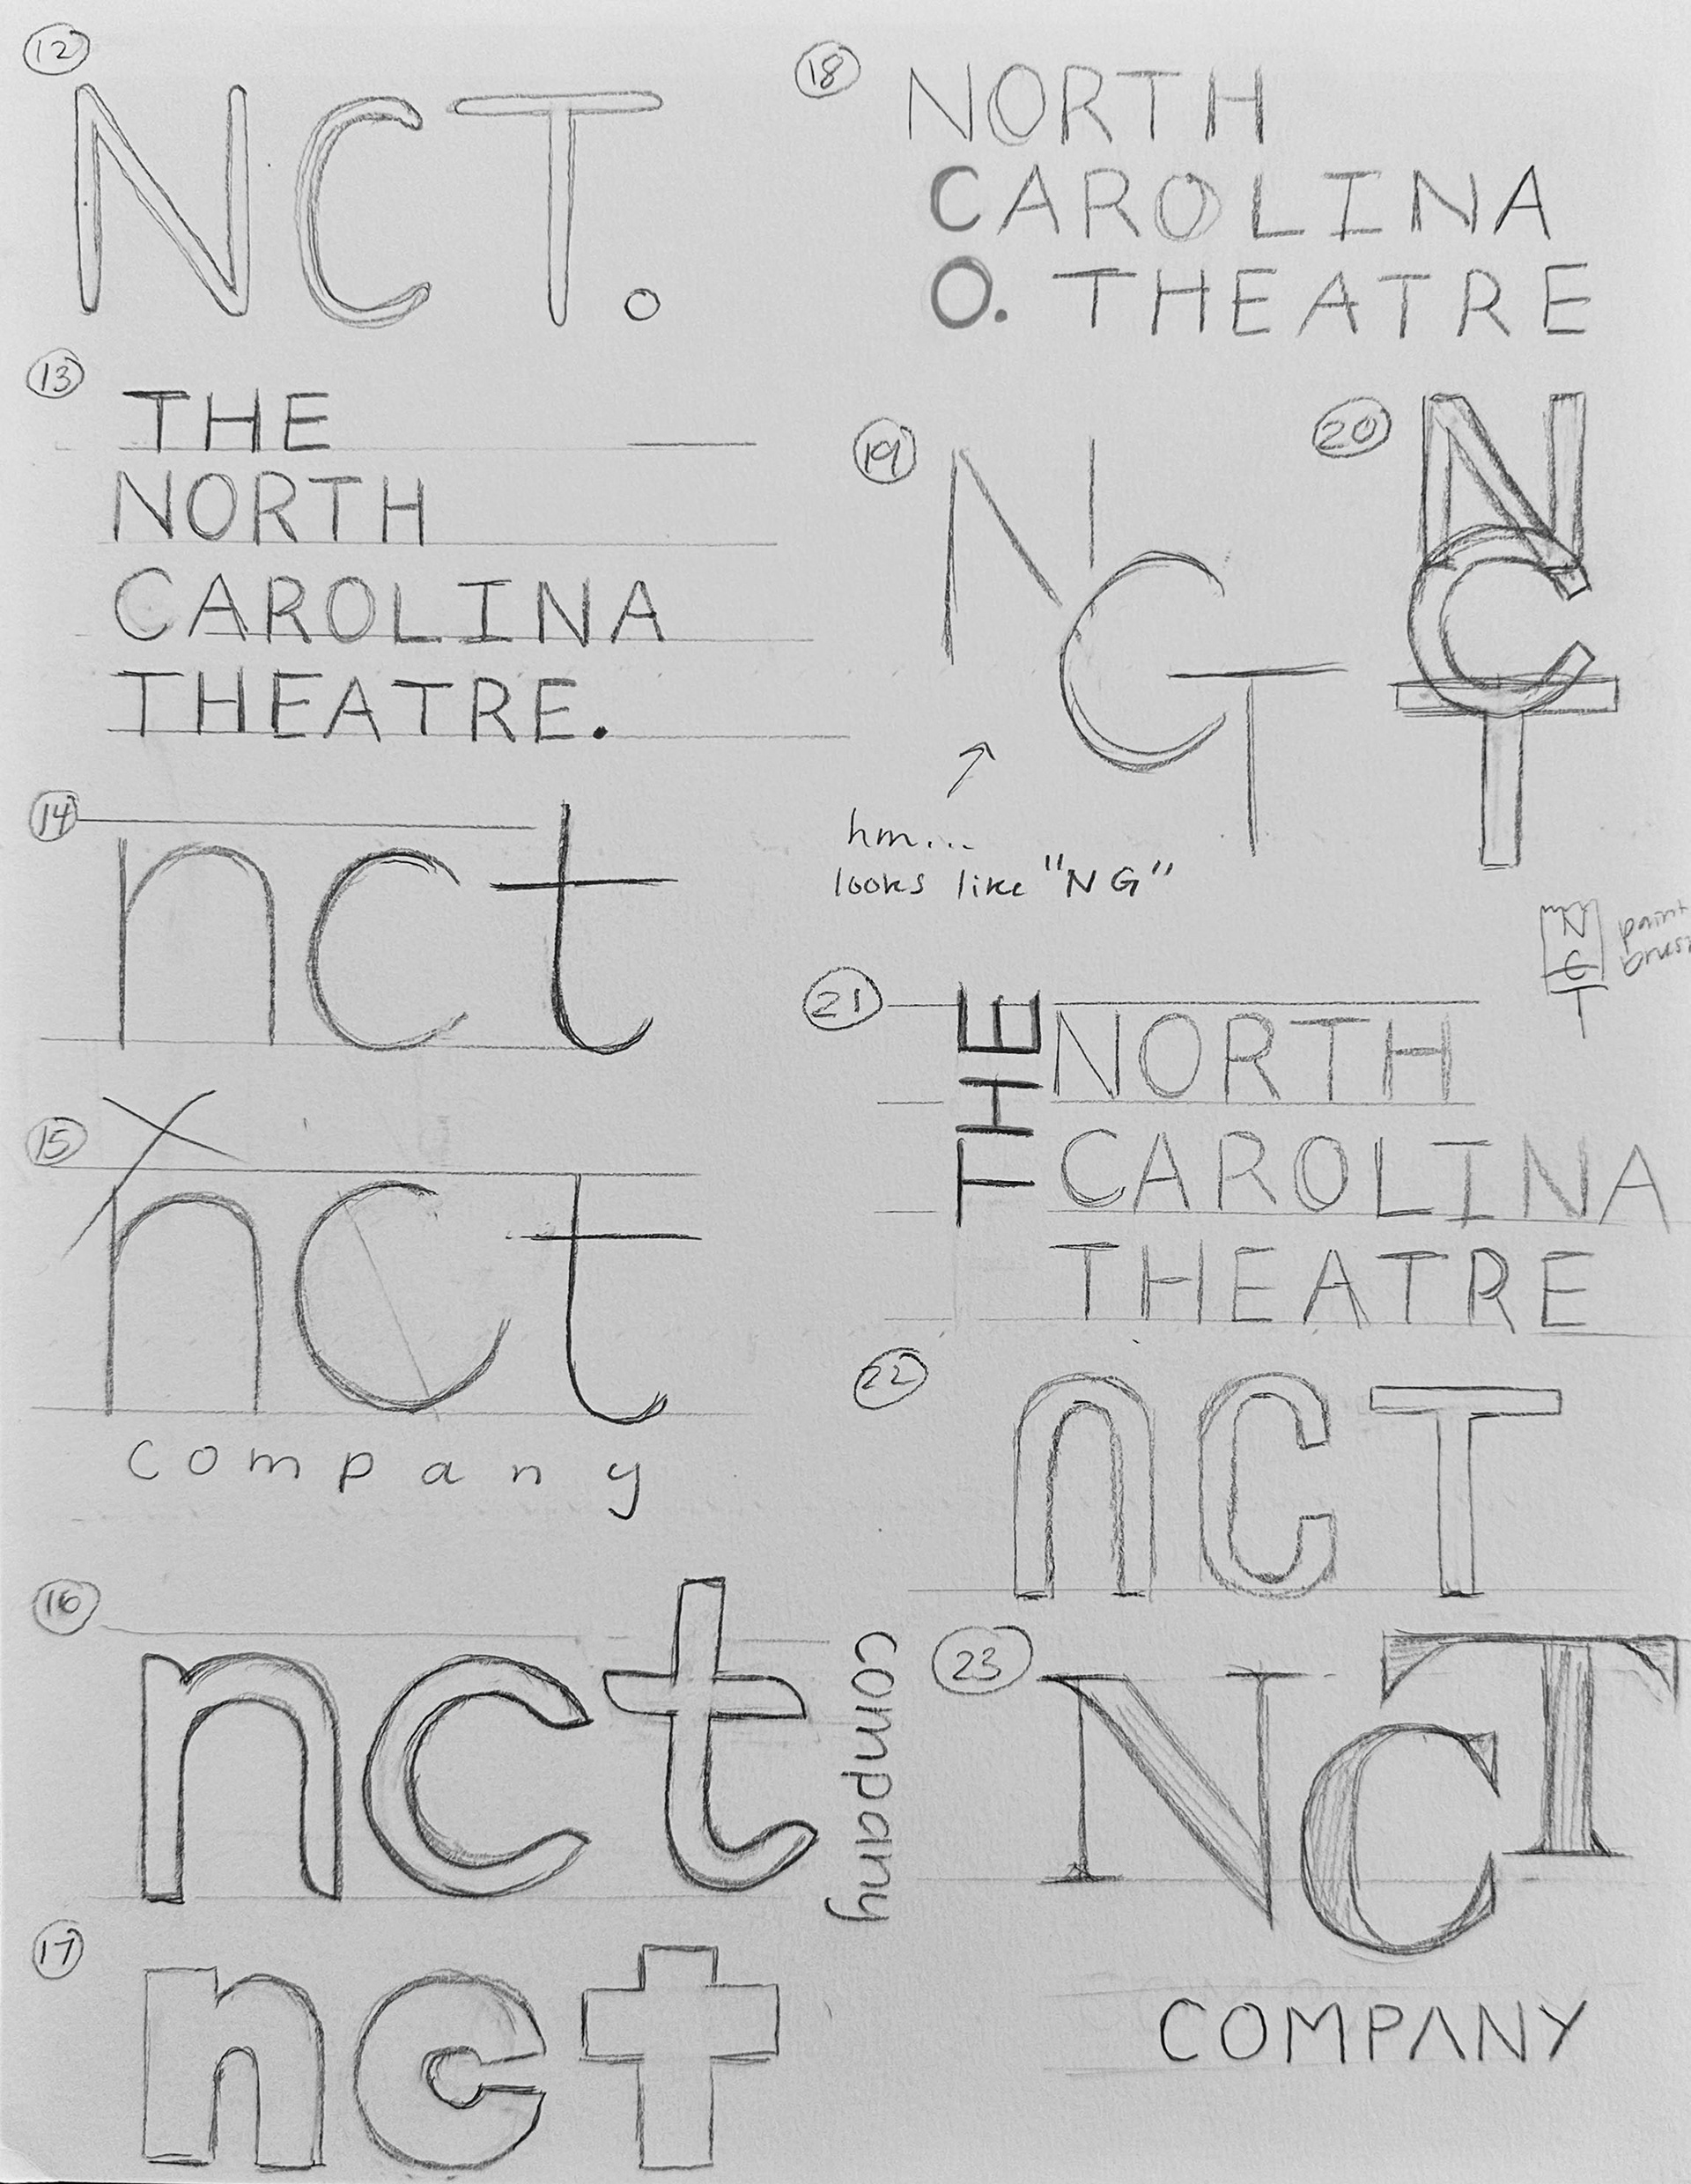 12
NCT.
13
THE
NORTH
CAROLINA
THEATRE.
14
nct
15
nct
company
16
nct
company
17
nct
18
NORTH
CAROLINA
O. THEATRE
19
NCT
hm...
looks like "NG"
20
N
C
T
N
C
T
paint
brush
21
THE
NORTH
CAROLINA
THEATRE
22
nCT
23
NCT
COMPANY